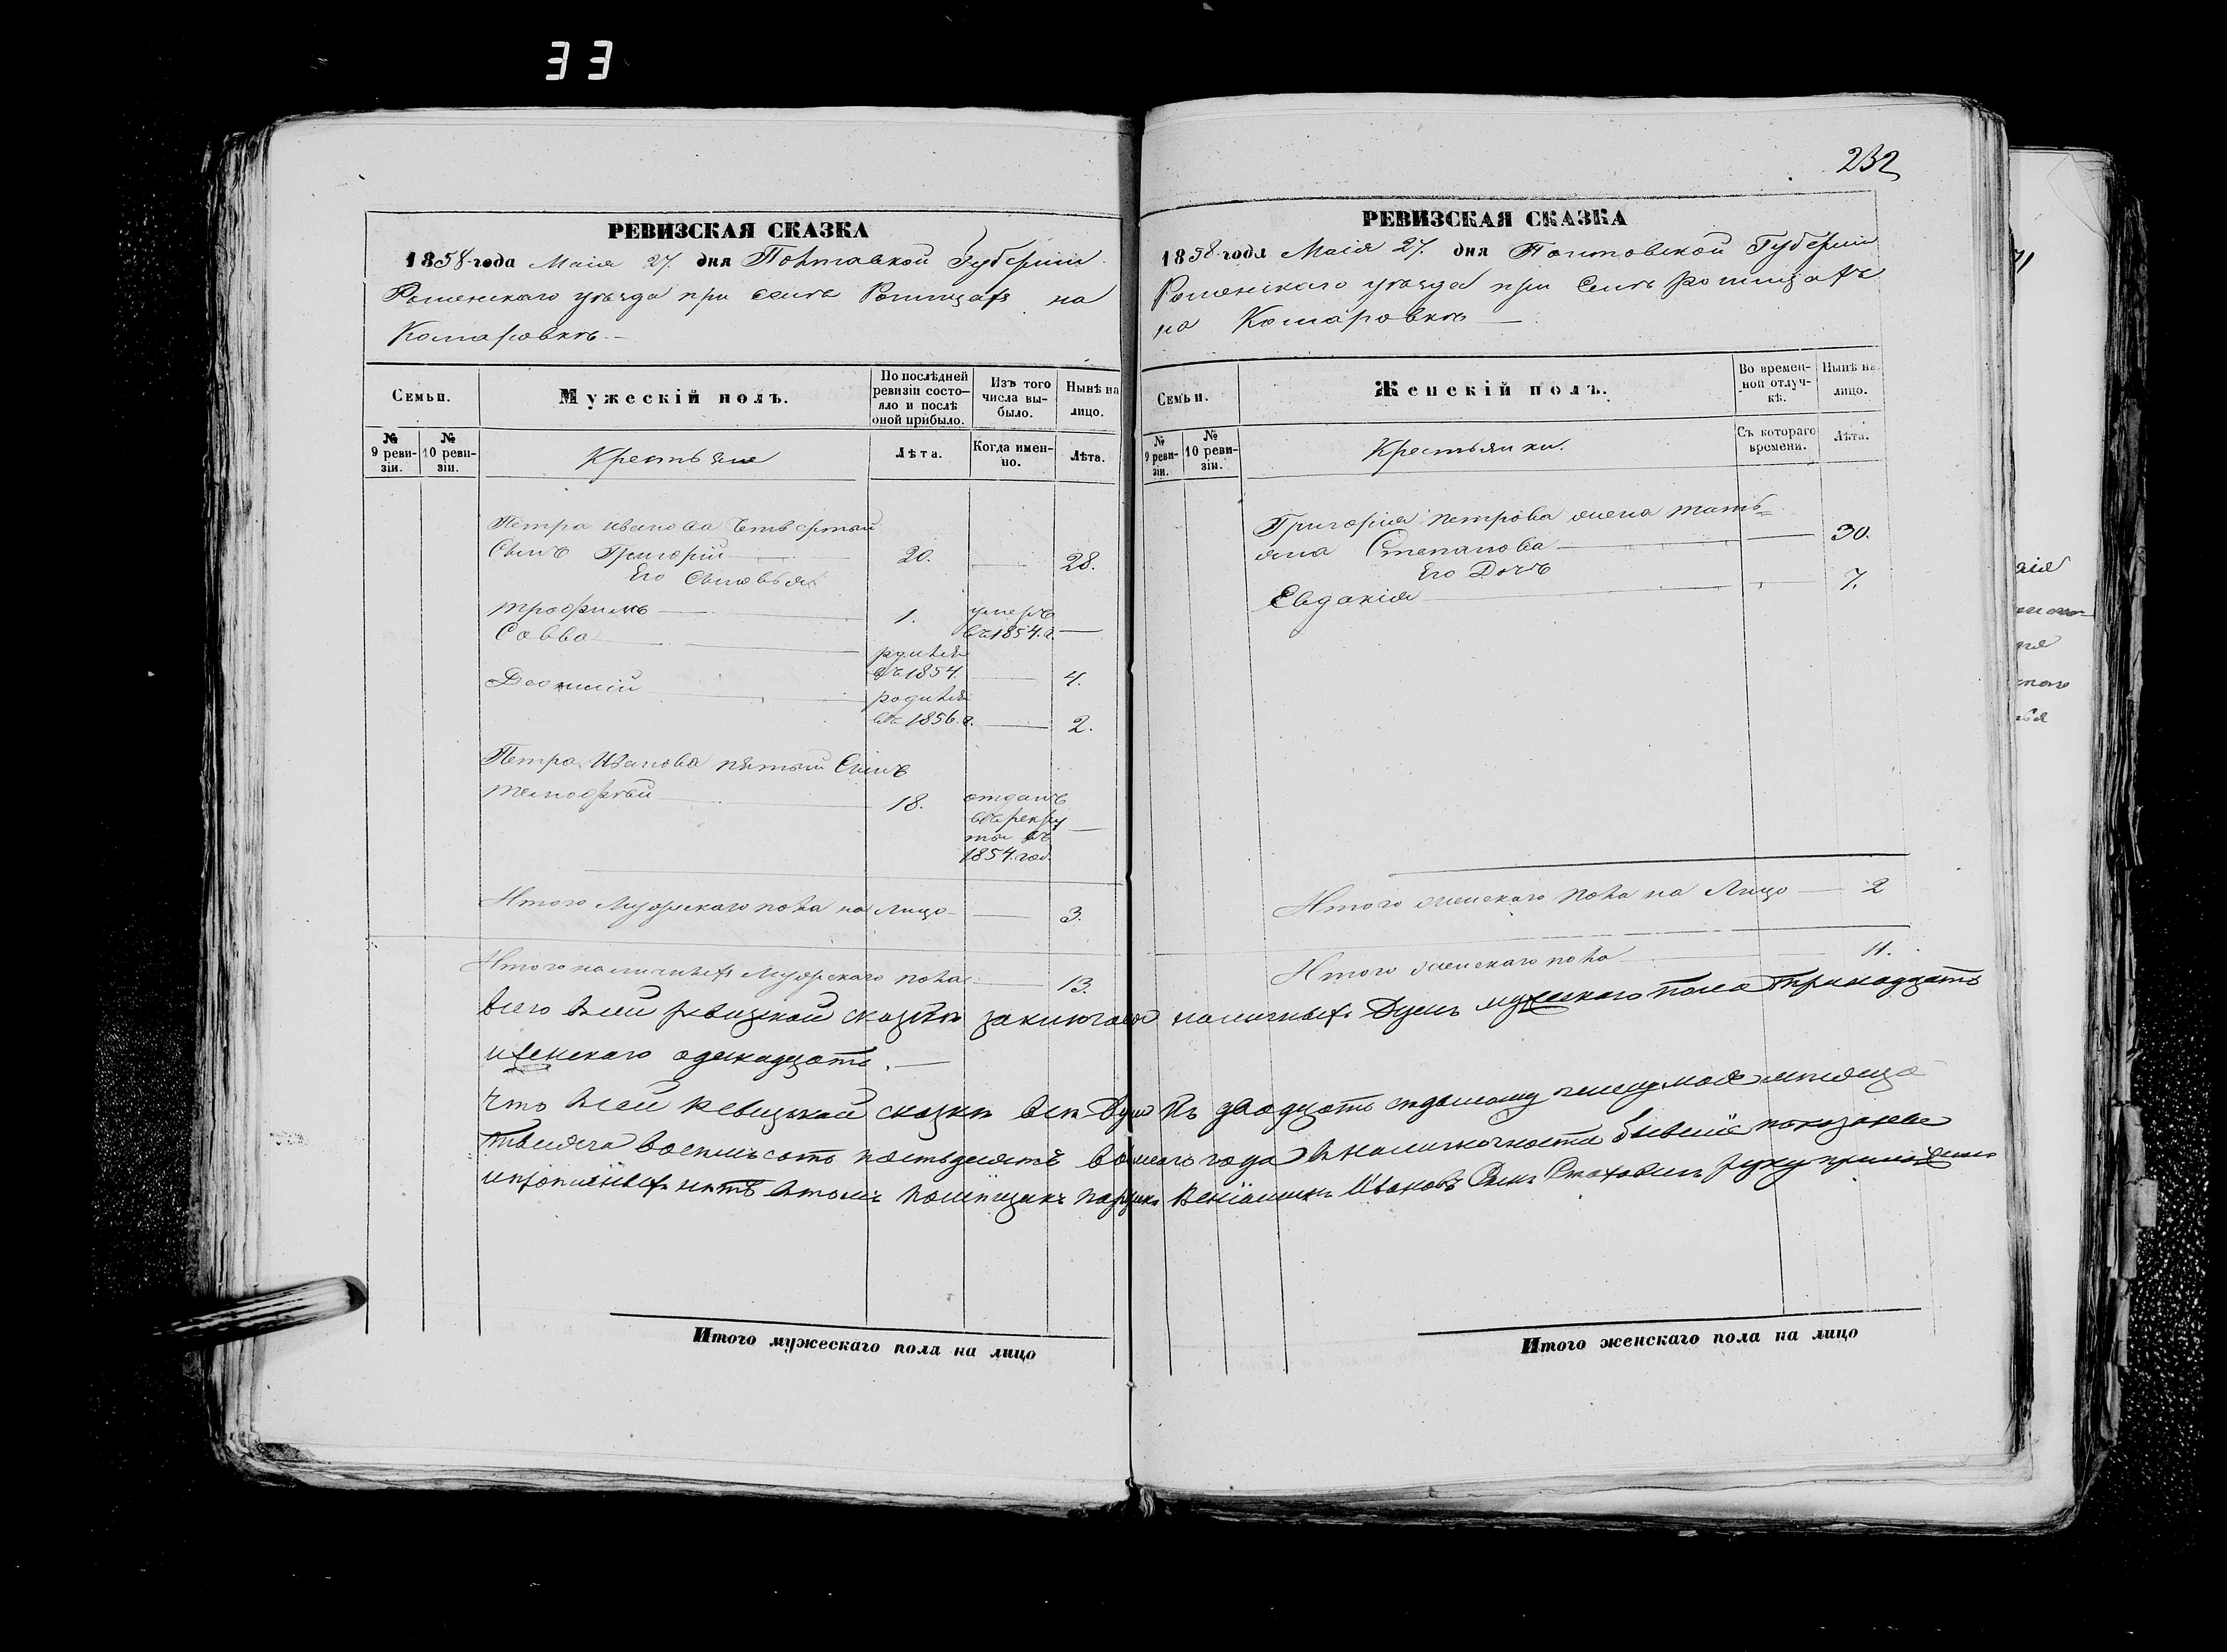 33
232
РЕВИЗСКАЯ СКАЗКА
1858 года Маія 27. дня Полтавской Губерніи
Роменскаго уѣзда при селѣ на
Комаровкѣ.
Семьи.
Мужескій полъ.
По послѣдней ревизіи состояло и послѣ оной прибыло.
Изъ того числа выбыло.
Нынѣ на лицо.
№ 9 ревизіи.
№ 10 ревизіи.
Крестьяне
Лѣта.
Когда именно.
Лѣта.
Петра Иванова Четвертый
Сынъ Григорій 20. — 28.
Его Сыновья
Трофимъ 1. умеръ въ 1854. г. —
Савва родился въ 1854. — 4.
родился въ 1856. г. — 2.
Петра Иванова пятый Сынъ
Тимофѣй 18. отданъ въ рекруты въ 1854. год. —
Итого Мужескаго пола на лицо — 3.
Итого наличныхъ Мужескаго пола — 13.
РЕВИЗСКАЯ СКАЗКА
1858 года Маія 27. дня Полтовской Губерніи
Роменскаго уѣзда при Селѣ
на Комаровкѣ
Семьи.
Женскій полъ.
Во временной отлучкѣ.
Нынѣ на лицо.
№ 9 ревизіи.
№ 10 ревизіи.
Крестьянки.
Съ котораго времени.
Лѣта.
Григорія Петрова жена Тать=
яна Степанова — 30.
Его Дочь
Евдакія — 7.
Итого женскаго пола на Лицо — 2
Итого женскаго пола 11.
Всего в сей ревизской сказки заключается наличныхъ Душъ мужескаго пола Тринадцать
и женскаго одинадцать. —
Что в сей Ревизской сказки все Души Къ двадцать седьмому числу мая мѣсяца
тысяча восемьсотъ пятьдесятъ восмаго года в наличности бывшіе показаны
и прописныхъ нѣтъ в томъ помѣщикъ Веніаминъ Ивановъ Сынъ Стаховичъ руку приложилъ
Итого мужескаго пола на лицо
Итого женскаго пола на лицо